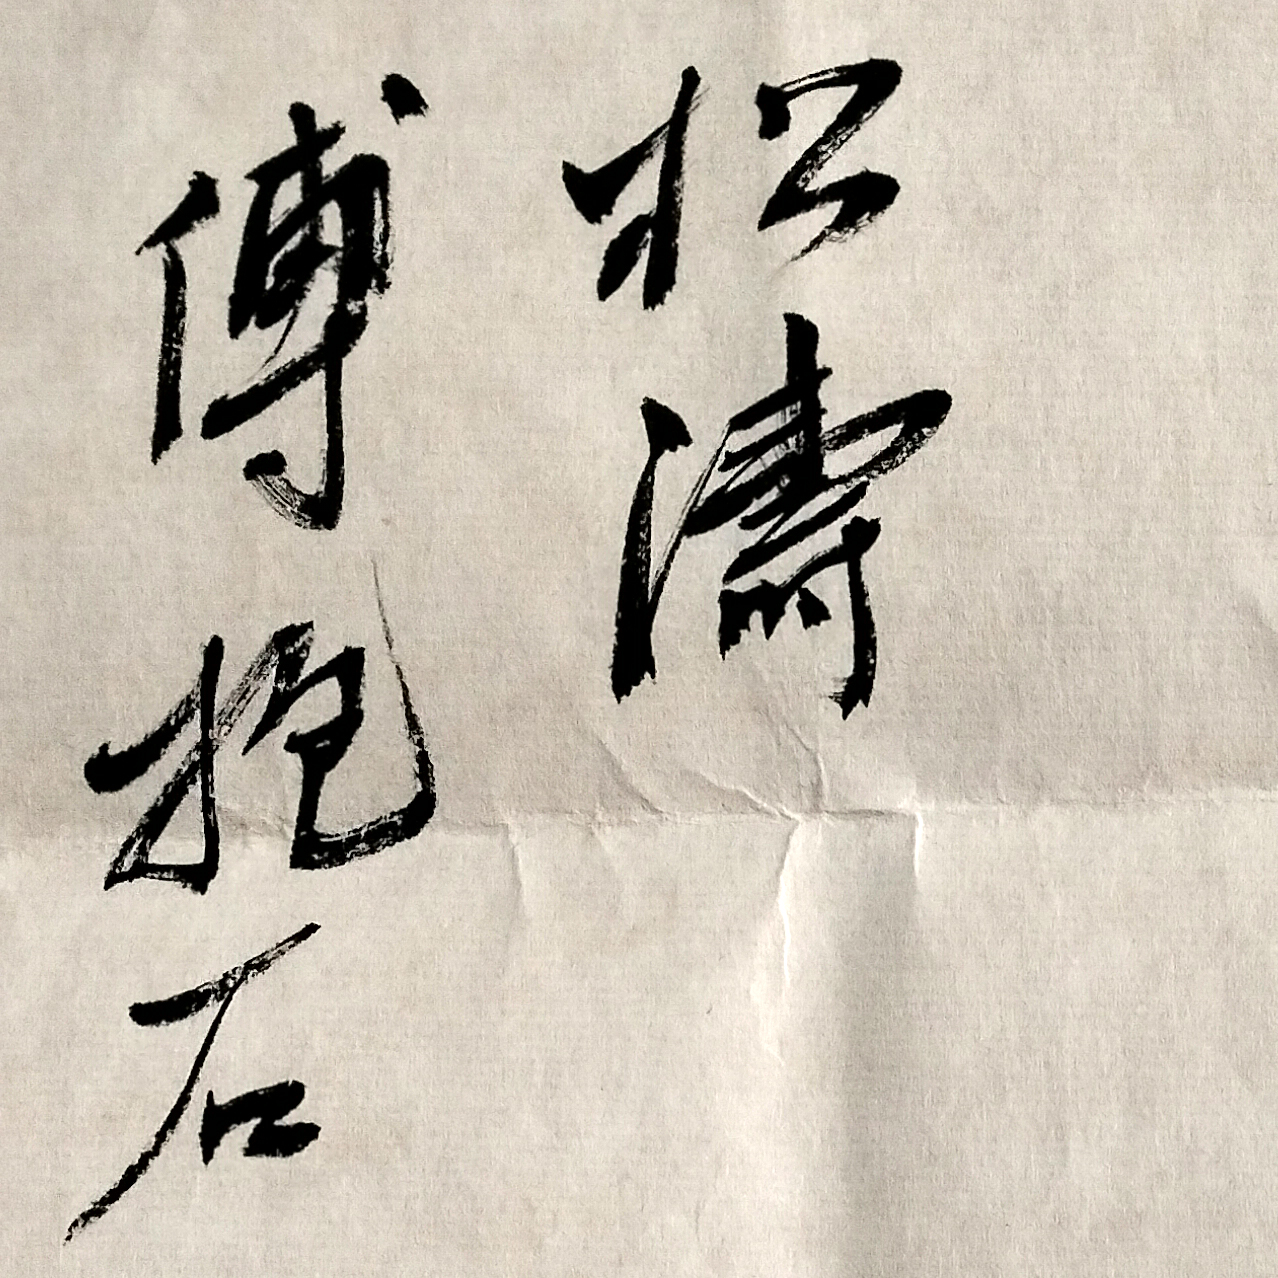 松濤
傅抱石